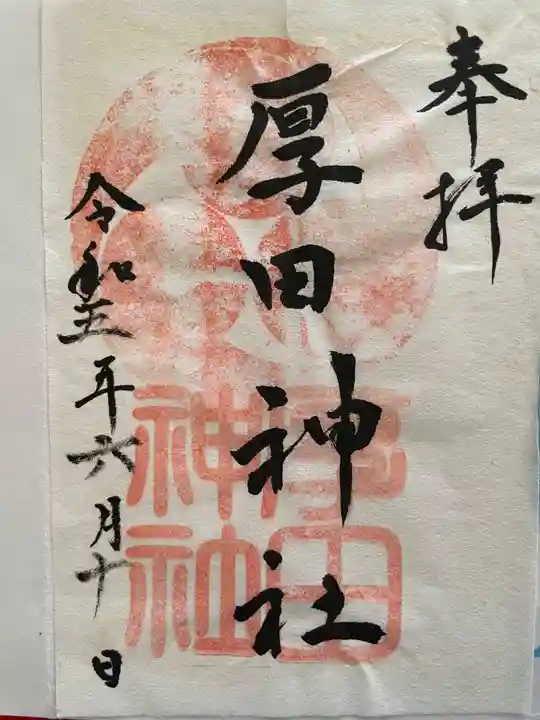 奉拝
厚田神社
厚田
神社
令和五年六月十日